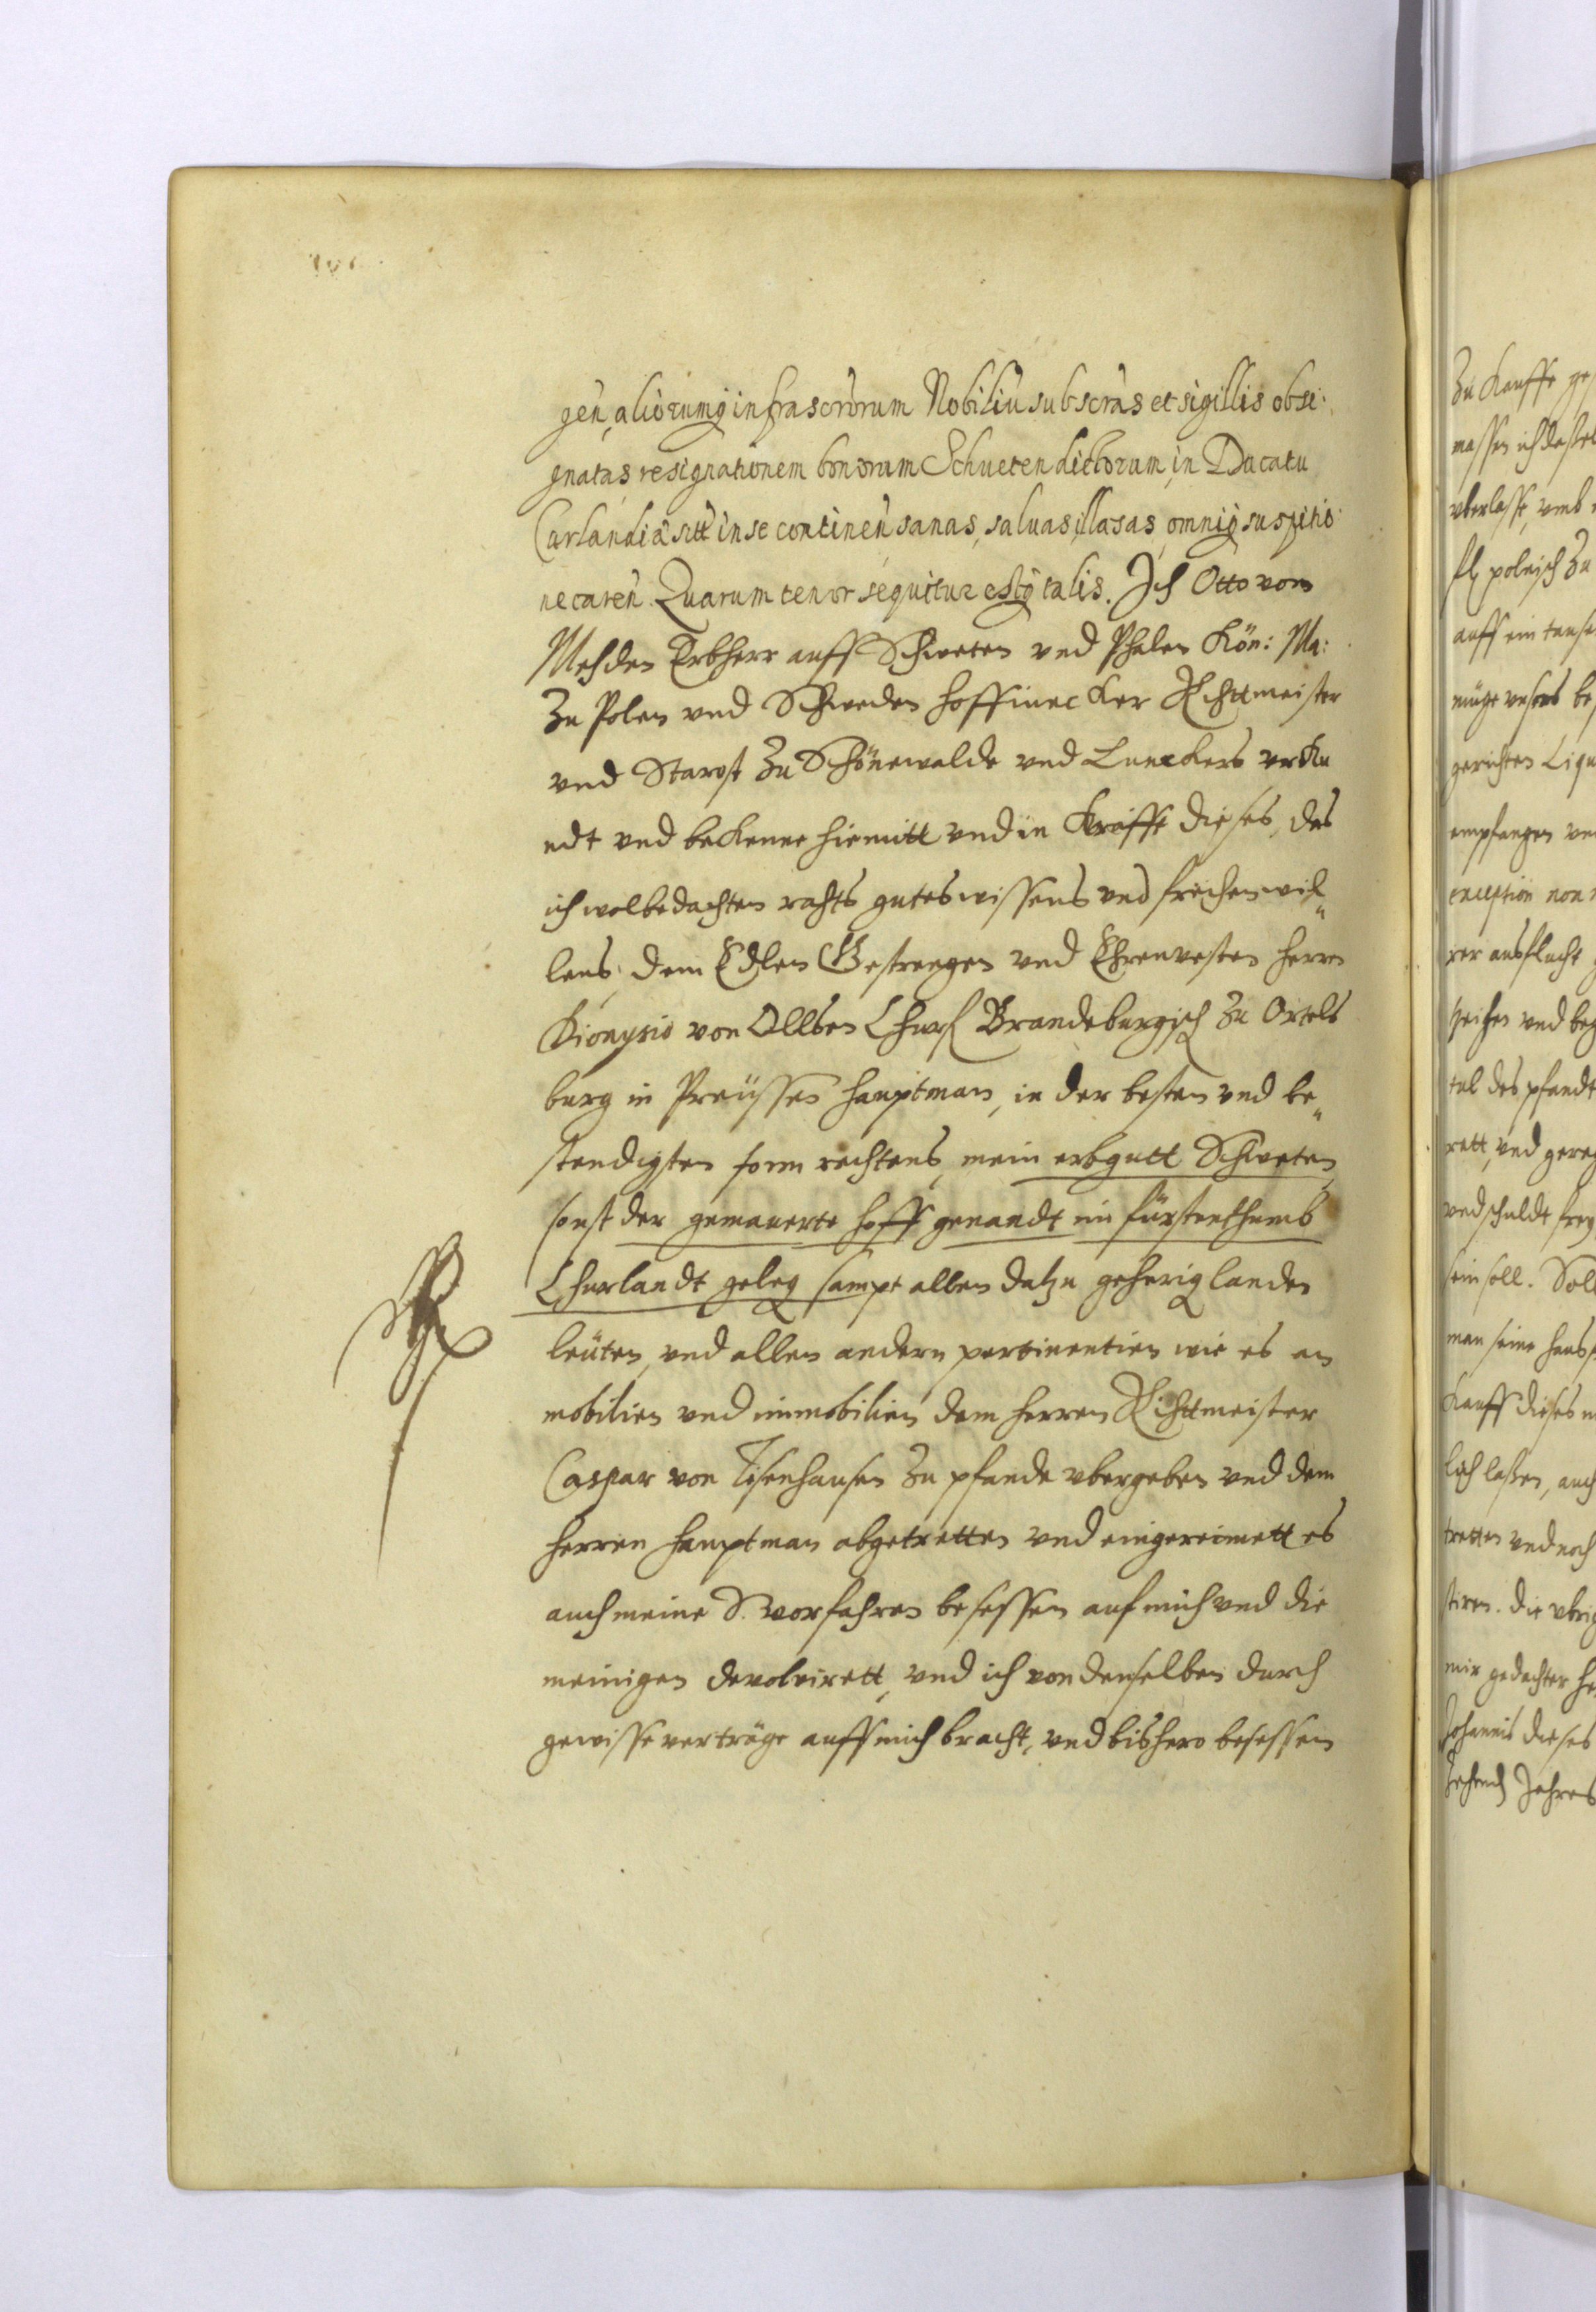 gen, aliorumq infrascrorum Nobiliu subscras et sigillis obsi:
gnatas resignationem bonorum Schueten dictorum, in Ducatu
Curlandiæ sitt in se continen sanas, saluas, illæsas, omniq suspitio
ne caren. Quarum tenor sequitur estq talis. Ich Otto von
Mehden Erbherr auff Schweten vnd Phalen Kön: Ma:
Zu Polen vnd Schweden hoffiunc ker Rihttmeister
vnd Starost Zu Schönewalde vnd vrku
ndt vnd bekenne hiemitt vnd in Kraffe dieses, das
ich wolbedachten rahts gutes wissens vnd freihen wil„
lens, dem Edlen Gestrengen vnd Ehrenvesten herren
Dionysio von Ollsen Churf Brandeburgisch Zu Ortels
burg in Preüssen hauptman, in der besten vnd be„
stendigsten form rechtens, mein erbgutt Schweten,
sonst der gemauerte hoff genandt im fürstenthumb
Churlandt geleg sampt allen datzu geherig landen
leüten, vnd allen andern pertinentien wie es an
mobilien vnd immobilien dem herren Rihttmeister
Caspar von Tisenhausen Zu pfande vbergeben vnd dem
herren hauptman abgetretten vnd eingereimett es
auch meine S. vorfahren besessen auf mich vnd die
meinigen devolvirett, vnd ich von denselben durch
gewisse verträge auff mich bracht, vnd bishero besessen
Zu Kauffe
massen ich
vberlasse, vmb
fl polnisch Zu
auff ein
müge vnsers
gerichten
empfangen
exception non
rer ausflucht
vnd
des pfandt
rett, vnd
vnd schuldt frey
sein soll.
man seine
Kauff dieses
lich lassen, auch
tretten vnd noch
tiren. die
mir gedachter
Johannis dieses
Jahres